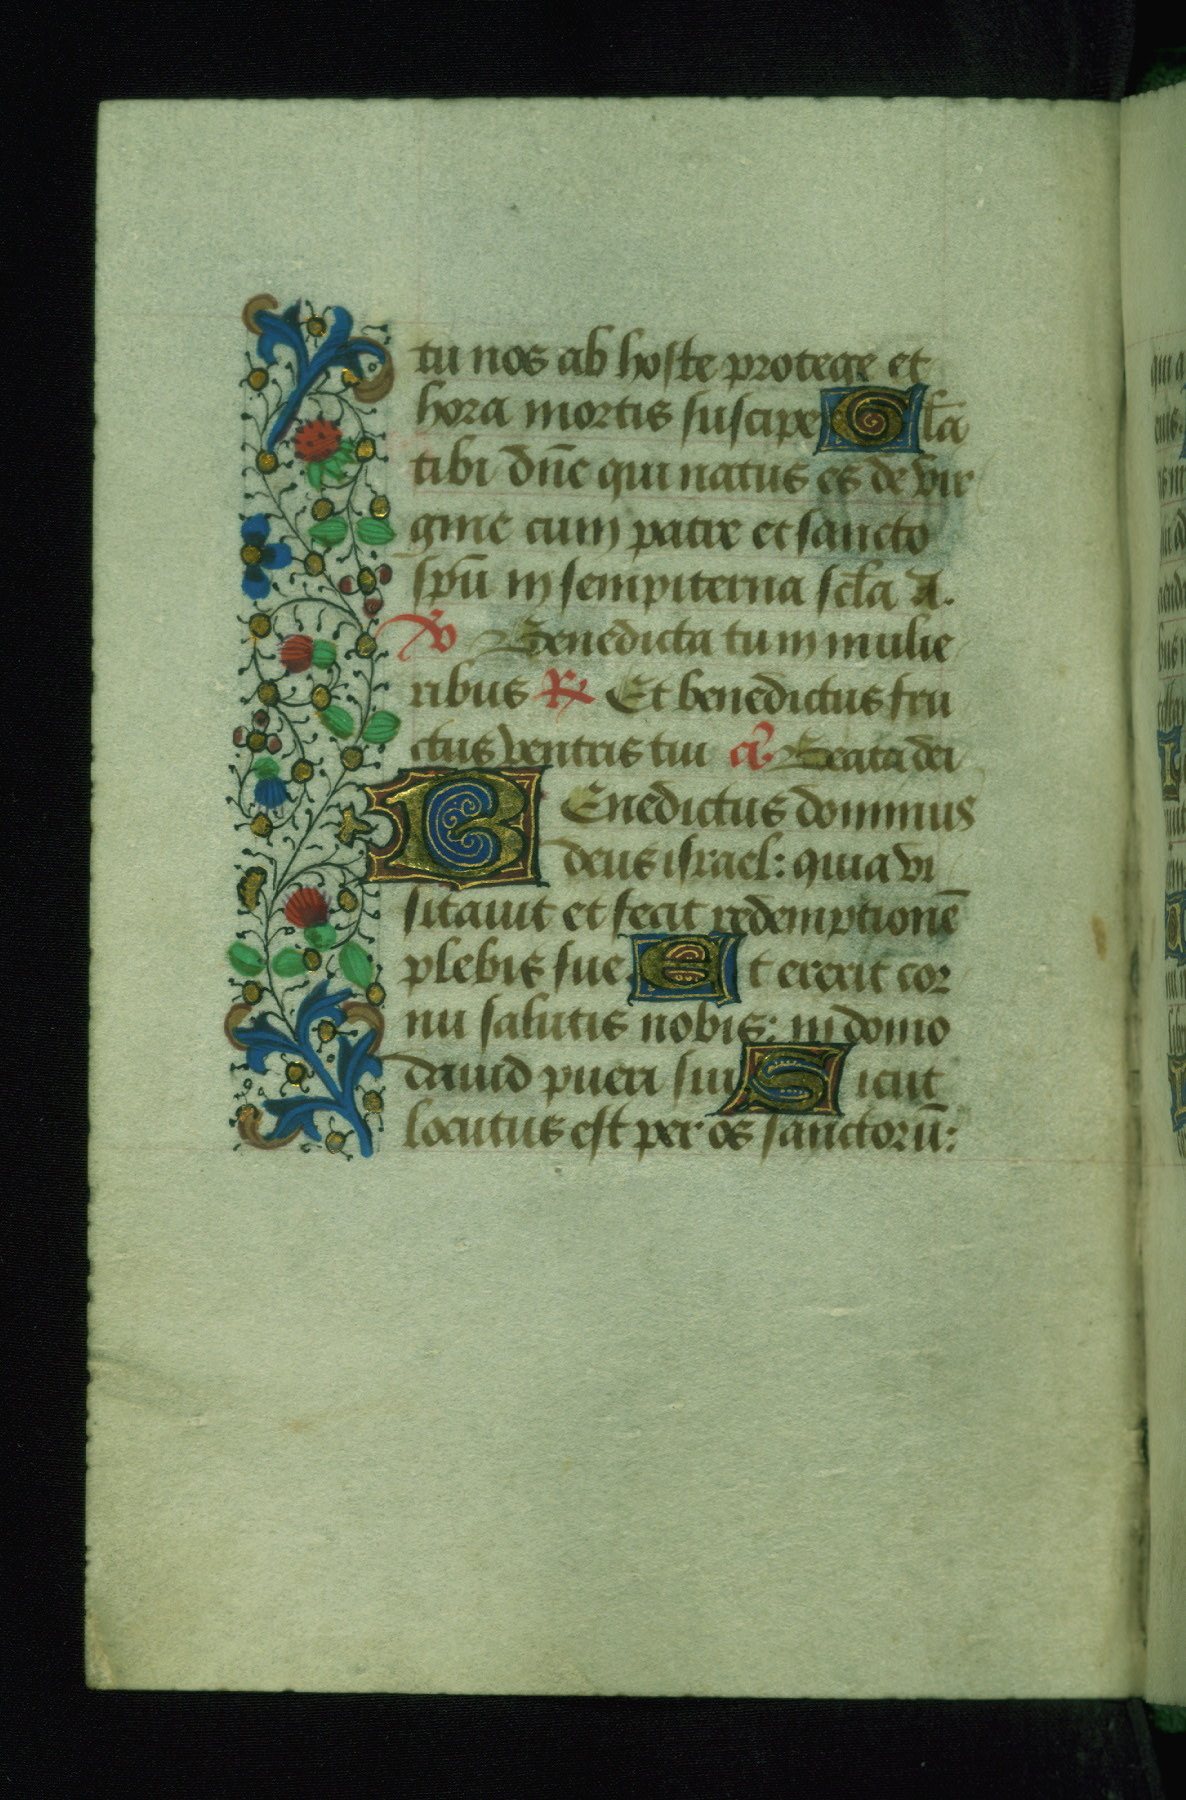 tu nos ab hoste protege et
hora mortis suscipe Gl̄a
tibi dn̄e qui natus es de vir
gine cum patre et sancto
sp̄u in sempiterna sc̄la A.
V̄ Benedicta tu in mulie
ribus R̄ Et benedictus fru
ctus ventris tui a᷑. Beata dei
Benedictus dominus
deus israel: quia vi
sitauit et fecit redemptionē
plebis sue Et erexit cor
nu salutis nobis: in domo
dauid pueri sui Sicut
locutus est per os sanctorū: